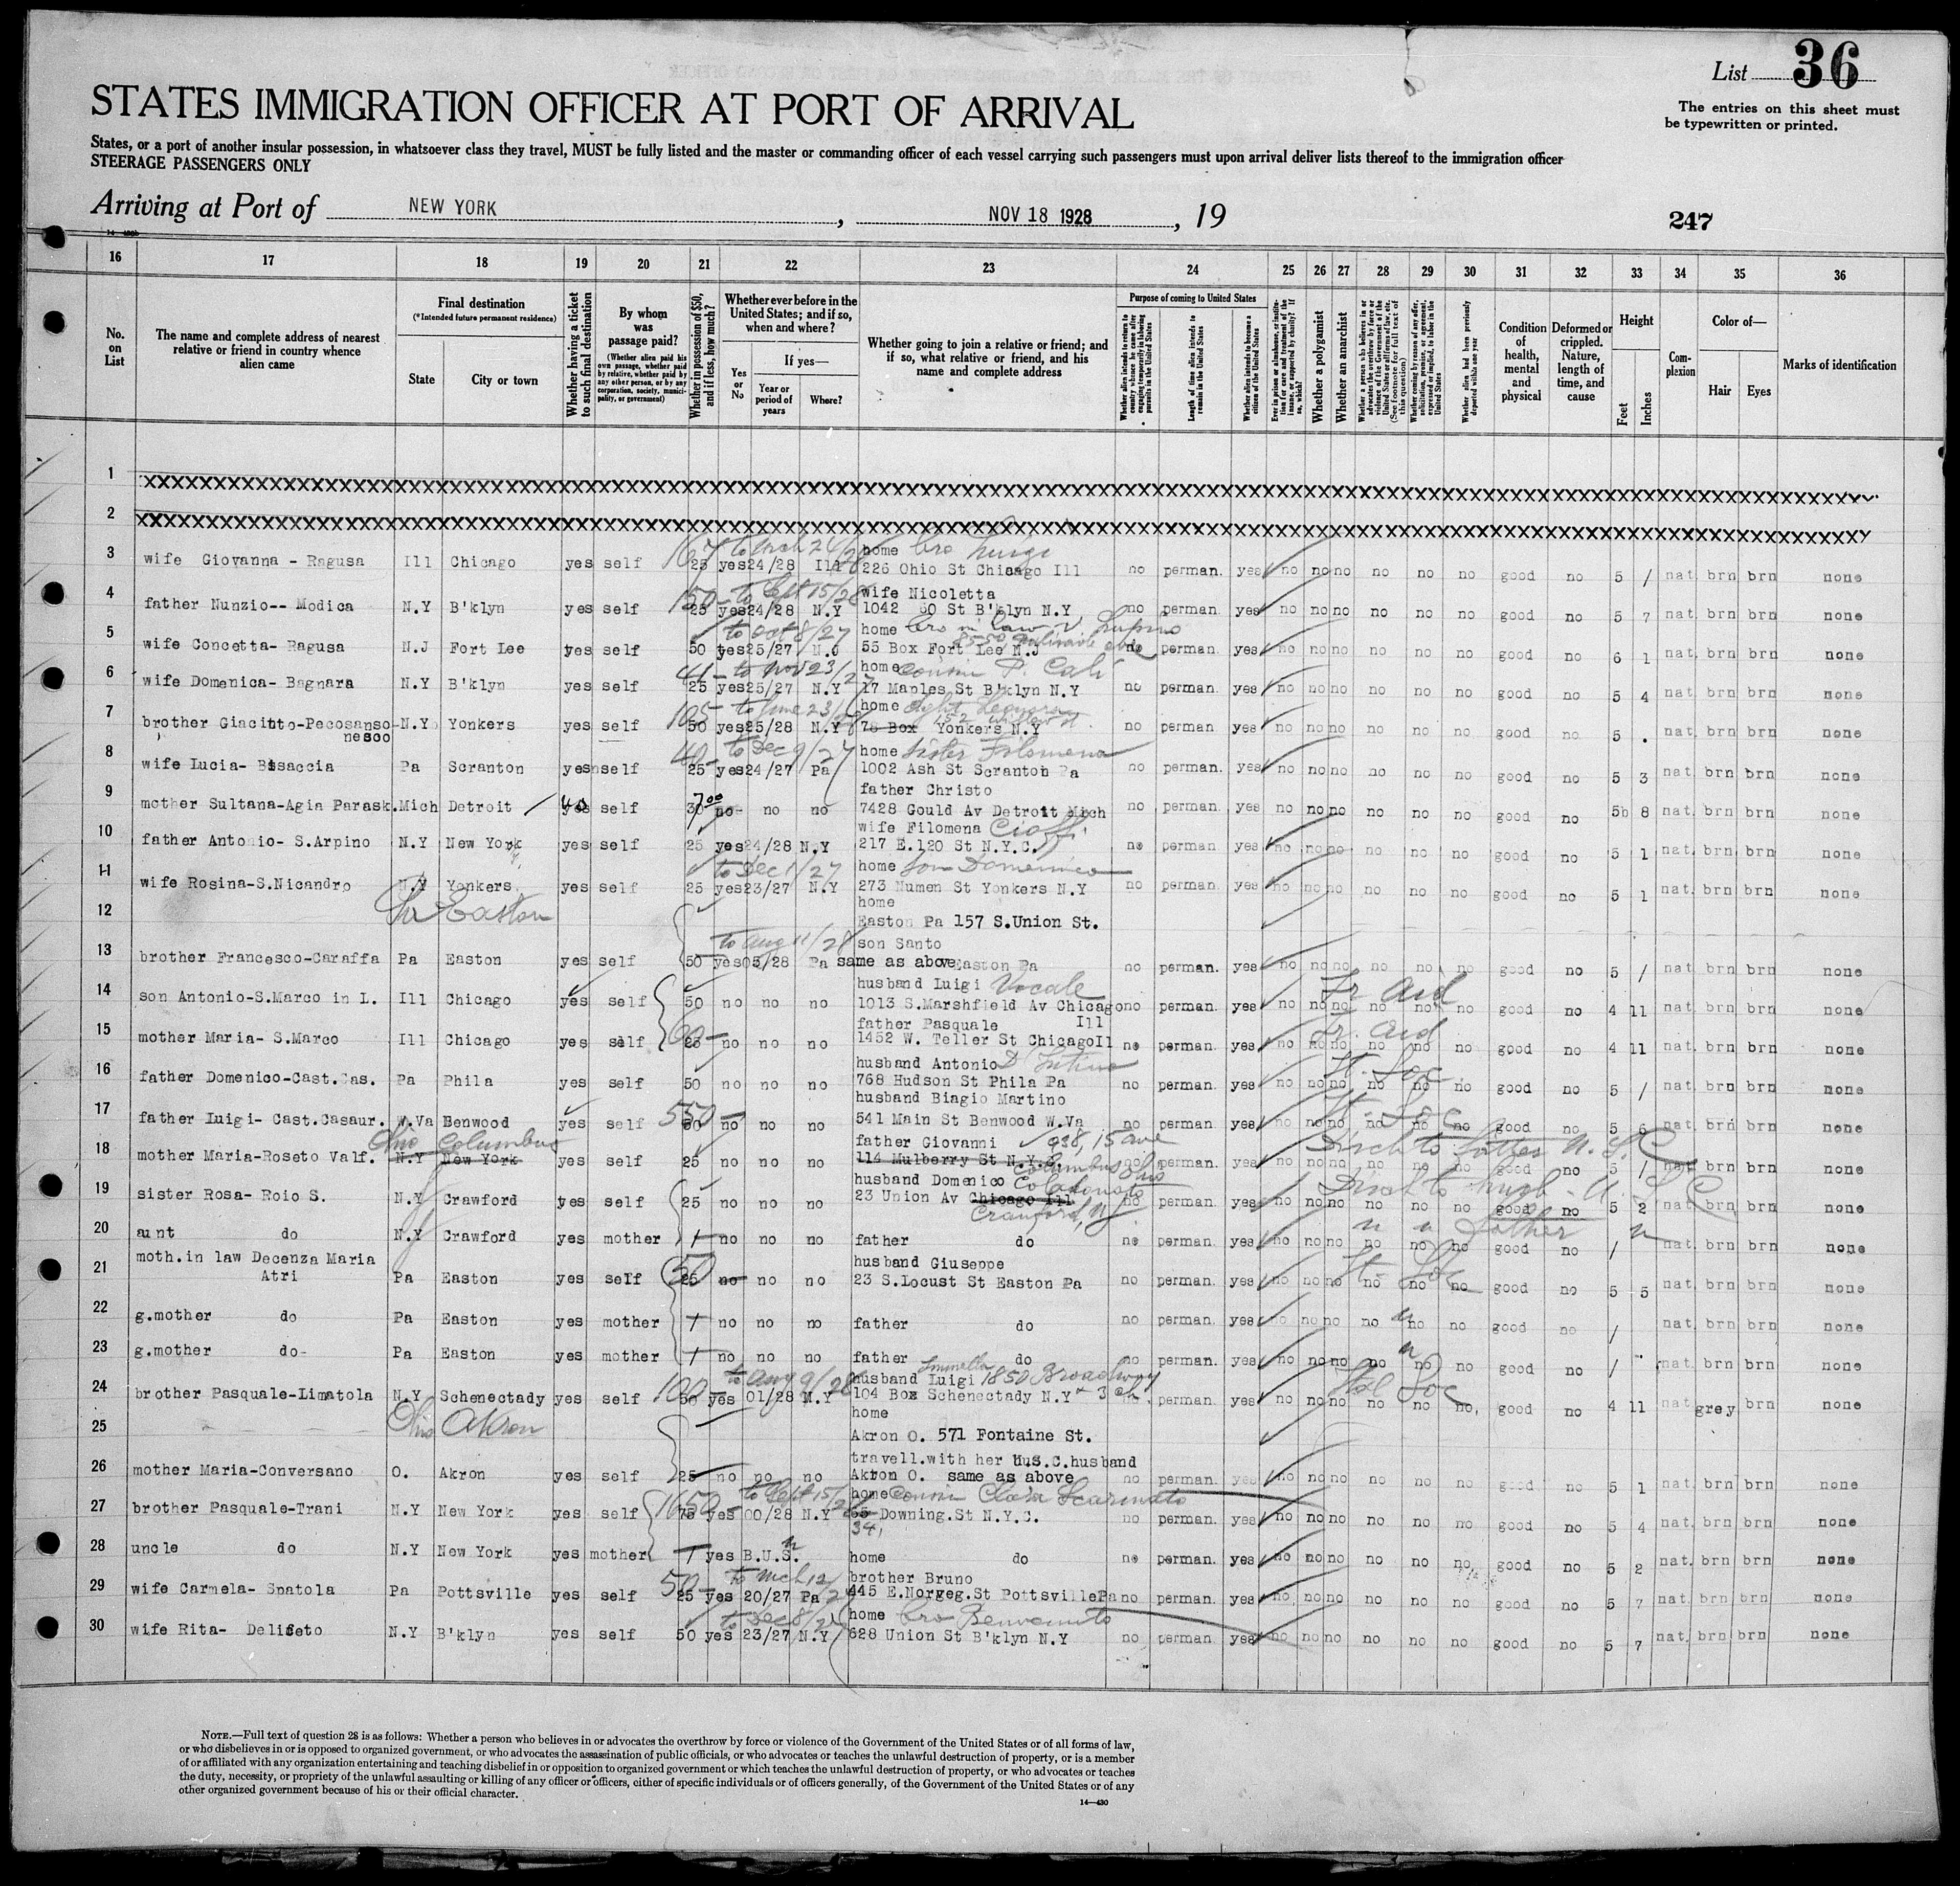 List 36
The entries on this sheet must
be typewritten or printed.
STATES IMMIGRATION OFFICER AT PORT OF ARRIVAL
States, or a port of another insular possession, in whatsoever class they travel, MUST be fully listed and the master or commanding officer of each vessel carrying such passengers must upon arrival deliver lists thereof to the immigration officer
STEERAGE PASSENGERS ONLY
Arriving at Port of NEW YORK, NOV 18 1928, 19
247
16 17 18 19 20 21 22 23 24 25 26 27 28 29 30 31 32 33 34 35 36
No. on List
The name and complete address of nearest relative or friend in country whence alien came
Final destination
(*Intended future permanent residence)
State City or town
Whether having a ticket to such final destination
By whom was passage paid?
(Whether alien paid his own passage, whether paid by relative, whether paid by any other person, or by any corporation, society, municipality, or government)
Whether in possession of $50, and if less, how much?
Whether ever before in the United States; and if so, when and where?
Yes or No
If yes—
Year or period of years Where?
Whether going to join a relative or friend; and if so, what relative or friend, and his name and complete address
Purpose of coming to United States
Whether alien intends to return to country whence he came after engaging temporarily in laboring pursuits in the United States
Length of time alien intends to remain in the United States
Whether alien intends to become a citizen of the United States
Ever in prison or almshouse, or institution for care and treatment of the insane, or supported by charity? If so, which?
Whether a polygamist
Whether an anarchist
Whether a person who believes in or advocates the overthrow by force or violence of the Government of the United States or all forms of law, etc. (See footnote for full text of this question)
Whether coming by reason of any offer, solicitation, promise, or agreement, expressed or implied, to labor in the United States
Whether alien had been previously deported within one year
Condition of health, mental and physical
Deformed or crippled. Nature, length of time, and cause
Height
Feet Inches
Complexion
Color of—
Hair Eyes
Marks of identification
1 XXXXXXXXXXXXXXXXXXXX
2 XXXXXXXXXXXXXXXXXXXX
3 wife Giovanna - Ragusa Ill Chicago yes self 25 yes 24/28 Ill home bro Luigi
226 Ohio St Chicago Ill no perman. yes no no no no no no good no 5 / nat brn brn none
4 father Nunzio-- Modica N.Y B'klyn yes self 150 25 to Sept 15/28 yes 24/28 N.Y wife Nicoletta
1042 60 St B'klyn N.Y no perman. yes no no no no no no good no 5 7 nat. brn brn none
5 wife Concetta- Ragusa N.J Fort Lee yes self 50 to Oct 8/27 yes 25/27 N.J home bro in law
55 Box Fort Lee N.J no perman. yes no no no no no no good no 6 1 nat. brn brn none
6 wife Domenica- Bagnara N.Y B'klyn yes self 41 25 to Nov 23/27 yes 25/27 N.Y home cousin P. Cali
17 Maples St B'klyn N.Y no perman. yes no no no no no no good no 5 4 nat. brn brn none
7 brother Giacinto-Pecosanso-
nesco N.Y Yonkers yes self 105 50 to June 23/28 yes 25/28 N.Y home
78 Box Yonkers N.Y no perman. yes no no no no no no good no 5 nat. brn brn none
8 wife Lucia- Bisaccia Pa Scranton yes self 40 25 to Dec 9/27 yes 24/27 Pa home sister Filomena
1002 Ash St Scranton Pa no perman. yes no no no no no no good no 5 3 nat. brn brn none
9 mother Sultana-Agia Parask. Mich Detroit yes self 30 no no no father Christo
7428 Gould Av Detroit Mich no perman. yes no no no no no no good no 5 8 nat. brn brn none
10 father Antonio- S.Arpino N.Y New York yes self 25 yes 24/28 N.Y wife Filomena Cioffi
217 E.120 St N.Y.C. no perman yes no no no no no no good no 5 1 nat. brn brn none
11 wife Rosina-S.Nicandro N.Y Yonkers yes self 25 to Dec 1/27 yes 23/27 N.Y home son Domenico
273 Numen St Yonkers N.Y no perman. yes no no no no no no good no 5 1 nat. brn brn none
12 Pa Easton home
Easton Pa 157 S.Union St.
13 brother Francesco-Caraffa Pa Easton yes self 50 to Aug 11/28 yes 05/28 Pa son Santo
same as above Easton Pa no perman. yes no no no no no no good no 5 / nat. brn brn none
14 son Antonio-S.Marco in L. Ill Chicago yes self 50 no no no husband Luigi Vocale
1013 S.Marshfield Av Chicago Ill no perman. yes no no no no no no good no 4 11 nat. brn brn none
Tr Aid
15 mother Maria- S.Marco Ill Chicago yes self 60 25 no no no father Pasquale
1452 W. Teller St Chicago Il no perman. yes no no no no no no good no 4 11 nat. brn brn none
Tr. Aid
16 father Domenico-Cast.Cas. Pa Phila yes self 50 no no no husband Antonio
768 Hudson St Phila Pa no perman. yes no no no no no no good no 5 / nat. brn brn none
It. Soc
17 father Luigi- Cast.Casaur. W.Va Benwood yes self 550 50 no no no husband Biagio Martino
541 Main St Benwood W.Va no perman. yes no no no no no no good no 5 6 nat. brn brn none
It. Soc
18 mother Maria-Roseto Valf. Ohio Columbus N.Y New York yes self 25 no no no father Giovanni 938, 15 ave
114 Mulberry St N.Y.C. Columbus Ohio no perman. yes no no no no no no good no 5 / nat. brn brn none
Disch to father U.S.C
19 sister Rosa- Roio S. N.Y Crawford yes self 25 no no no husband Domenico
23 Union Av Chicago Ill Cranford, NJ no perman. yes no no no no no no good no 5 2 nat. brn brn none
Disch to husb - U S C
20 aunt do N.Y Crawford yes mother / no no no father do no perman. yes no no no no no no good no / nat. brn brn none
" " father "
21 moth.in law Decenza Maria
Atri Pa Easton yes self 50 25 no no no husband Giuseppe
23 S.Locust St Easton Pa no perman. yes no no no no no no good no 5 5 nat. brn brn none
It. Soc
22 g.mother do Pa Easton yes mother / no no no father do no perman. yes no no no no no no good no / nat. brn brn none
23 g.mother do- Pa Easton yes mother / no no no father do no perman. yes no no no no no no good no / nat. brn brn none
24 brother Pasquale-Limatola N.Y Schenectady yes self 100 50 to Aug 9/28 yes 01/28 N.Y husband Luigi 1850 Broadway
104 Box Schenectady N.Y no perman. yes no no no no no no good no 4 11 nat grey brn none
Ital Soc
25 Ohio Akron home
Akron O. 571 Fontaine St.
26 mother Maria-Conversano O. Akron yes self 25 no no no travell.with her U.S.C.husband
Akron O. same as above no perman. yes no no no no no no good no 5 1 nat. brn brn none
27 brother Pasquale-Trani N.Y New York yes self 1650 75 to Sept 15/28 yes 00/28 N.Y home cousin Clara Scarinato
65 Downing.St N.Y.C. no perman. yes no no no no no no good no 5 4 nat. brn brn none
34,
28 uncle do N.Y New York yes mother / yes B.U.S. home do no perman. yes no no no no no no good no 5 2 nat. brn brn none
29 wife Carmela- Spatola Pa Pottsville yes self 50 25 to Mch 12/27 yes 20/27 Pa brother Bruno
445 E.Norgeg.St Pottsville Pa no perman. yes no no no no no no good no 5 7 nat. brn brn none
30 wife Rita- Deliceto N.Y B'klyn yes self 50 to Dec 8/27 yes 23/27 N.Y home bro Benvenuto
628 Union St B'klyn N.Y no perman. yes no no no no no no good no 5 7 nat. brn brn none
NOTE.—Full text of question 28 is as follows: Whether a person who believes in or advocates the overthrow by force or violence of the Government of the United States or of all forms of law,
or who disbelieves in or is opposed to organized government, or who advocates the assassination of public officials, or who advocates or teaches the unlawful destruction of property, or is a member
of or affiliated with any organization entertaining and teaching disbelief in or opposition to organized government or which teaches the unlawful destruction of property, or who advocates or teaches
the duty, necessity, or propriety of the unlawful assaulting or killing of any officer or officers, either of specific individuals or of officers generally, of the Government of the United States or of any
other organized government because of his or their official character.
14—430